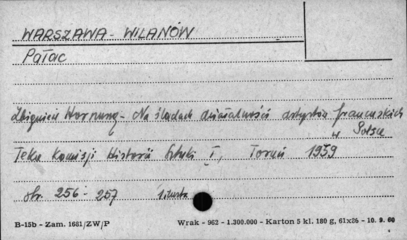 WARSZAWA - WILANÓW
Pałac
Zbigniew Hornung - Na śladach działalności artystów francuskich
w Polsce
Teka Komisji Historii Sztuki I, Toruń 1939
str. 256 - 257 1 ilustr.
B-15b - Zam. 1661/ZW/P Wrak - 962 - 1.300.000 - Karton 5 kl. 180 g, 61x86 - 10. 9. 60